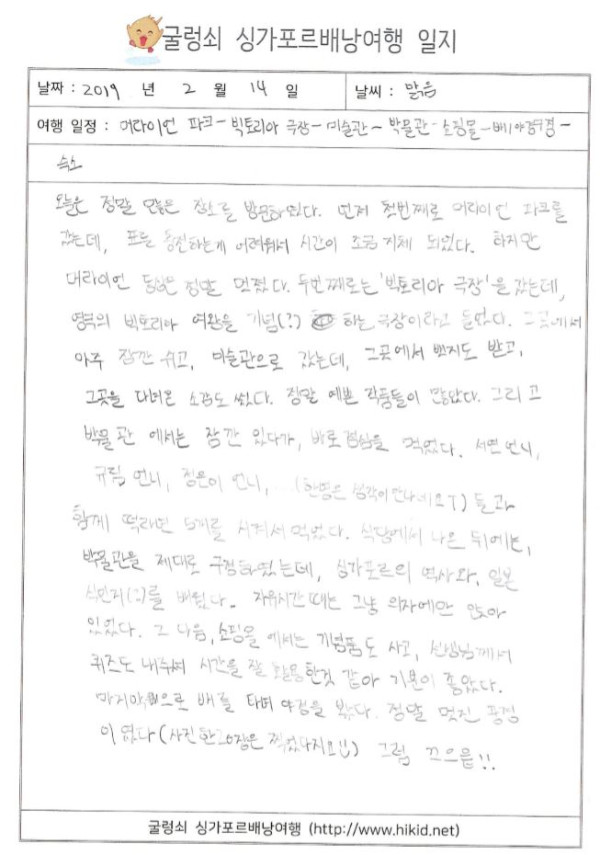 굴렁쇠 싱가포르배낭여행 일지
날짜 : 2019 년 2 월 14 일 날씨 : 맑음
여행 일정 : 머라이언 파크 - 빅토리아 극장 - 미술관 - 박물관 - 쇼핑몰 - 배 | 야경구경 -
숙소
오늘은 정말 많은 장소를 방문하였다. 먼저 첫번째로 머라이언 파크를
갔는데, 포든 동전하는게 어려워서 시간이 조금 지체 되었다. 하지만
머라이언 동상은 정말 멋졌다. 두번째로는 '빅토리아 극장'을 갔는데,
영국의 빅토리아 여왕을 기념(?) 하는 극장이라고 들었다. 그곳에서
아주 잠깐 쉬고, 미술관으로 갔는데, 그곳에서 뱃지도 받고,
그곳을 다녀온 소감도 썼다. 정말 예쁜 작품들이 많았다. 그리고
박물관 에서는 잠깐 있다가, 바로 점심을 먹었다. 서연 언니,
규림 언니, 정은이 언니, ...(한명은 생각이 안나네요ㅜ) 들과
함께 떡라면 5개를 시켜서 먹었다. 식당에서 나온 뒤에는,
박물관을 제대로 구경하였는데, 싱가포르의 역사와, 일본
식민지(?)를 배웠다. 자유시간 때는 그냥 의자에만 앉아
있었다. 그 다음, 쇼핑몰 에서는 기념품도 사고, 선생님께서
퀴즈도 내주셔 시간을 잘 활용한것 같아 기분이 좋았다.
마지막으로 배를 타며 야경을 봤다. 정말 멋진 풍경
이였다 (사진 한 20장은 찍었다지요!!) 그럼 끄으읕!!
굴렁쇠 싱가포르배낭여행 (http://www.hikid.net)